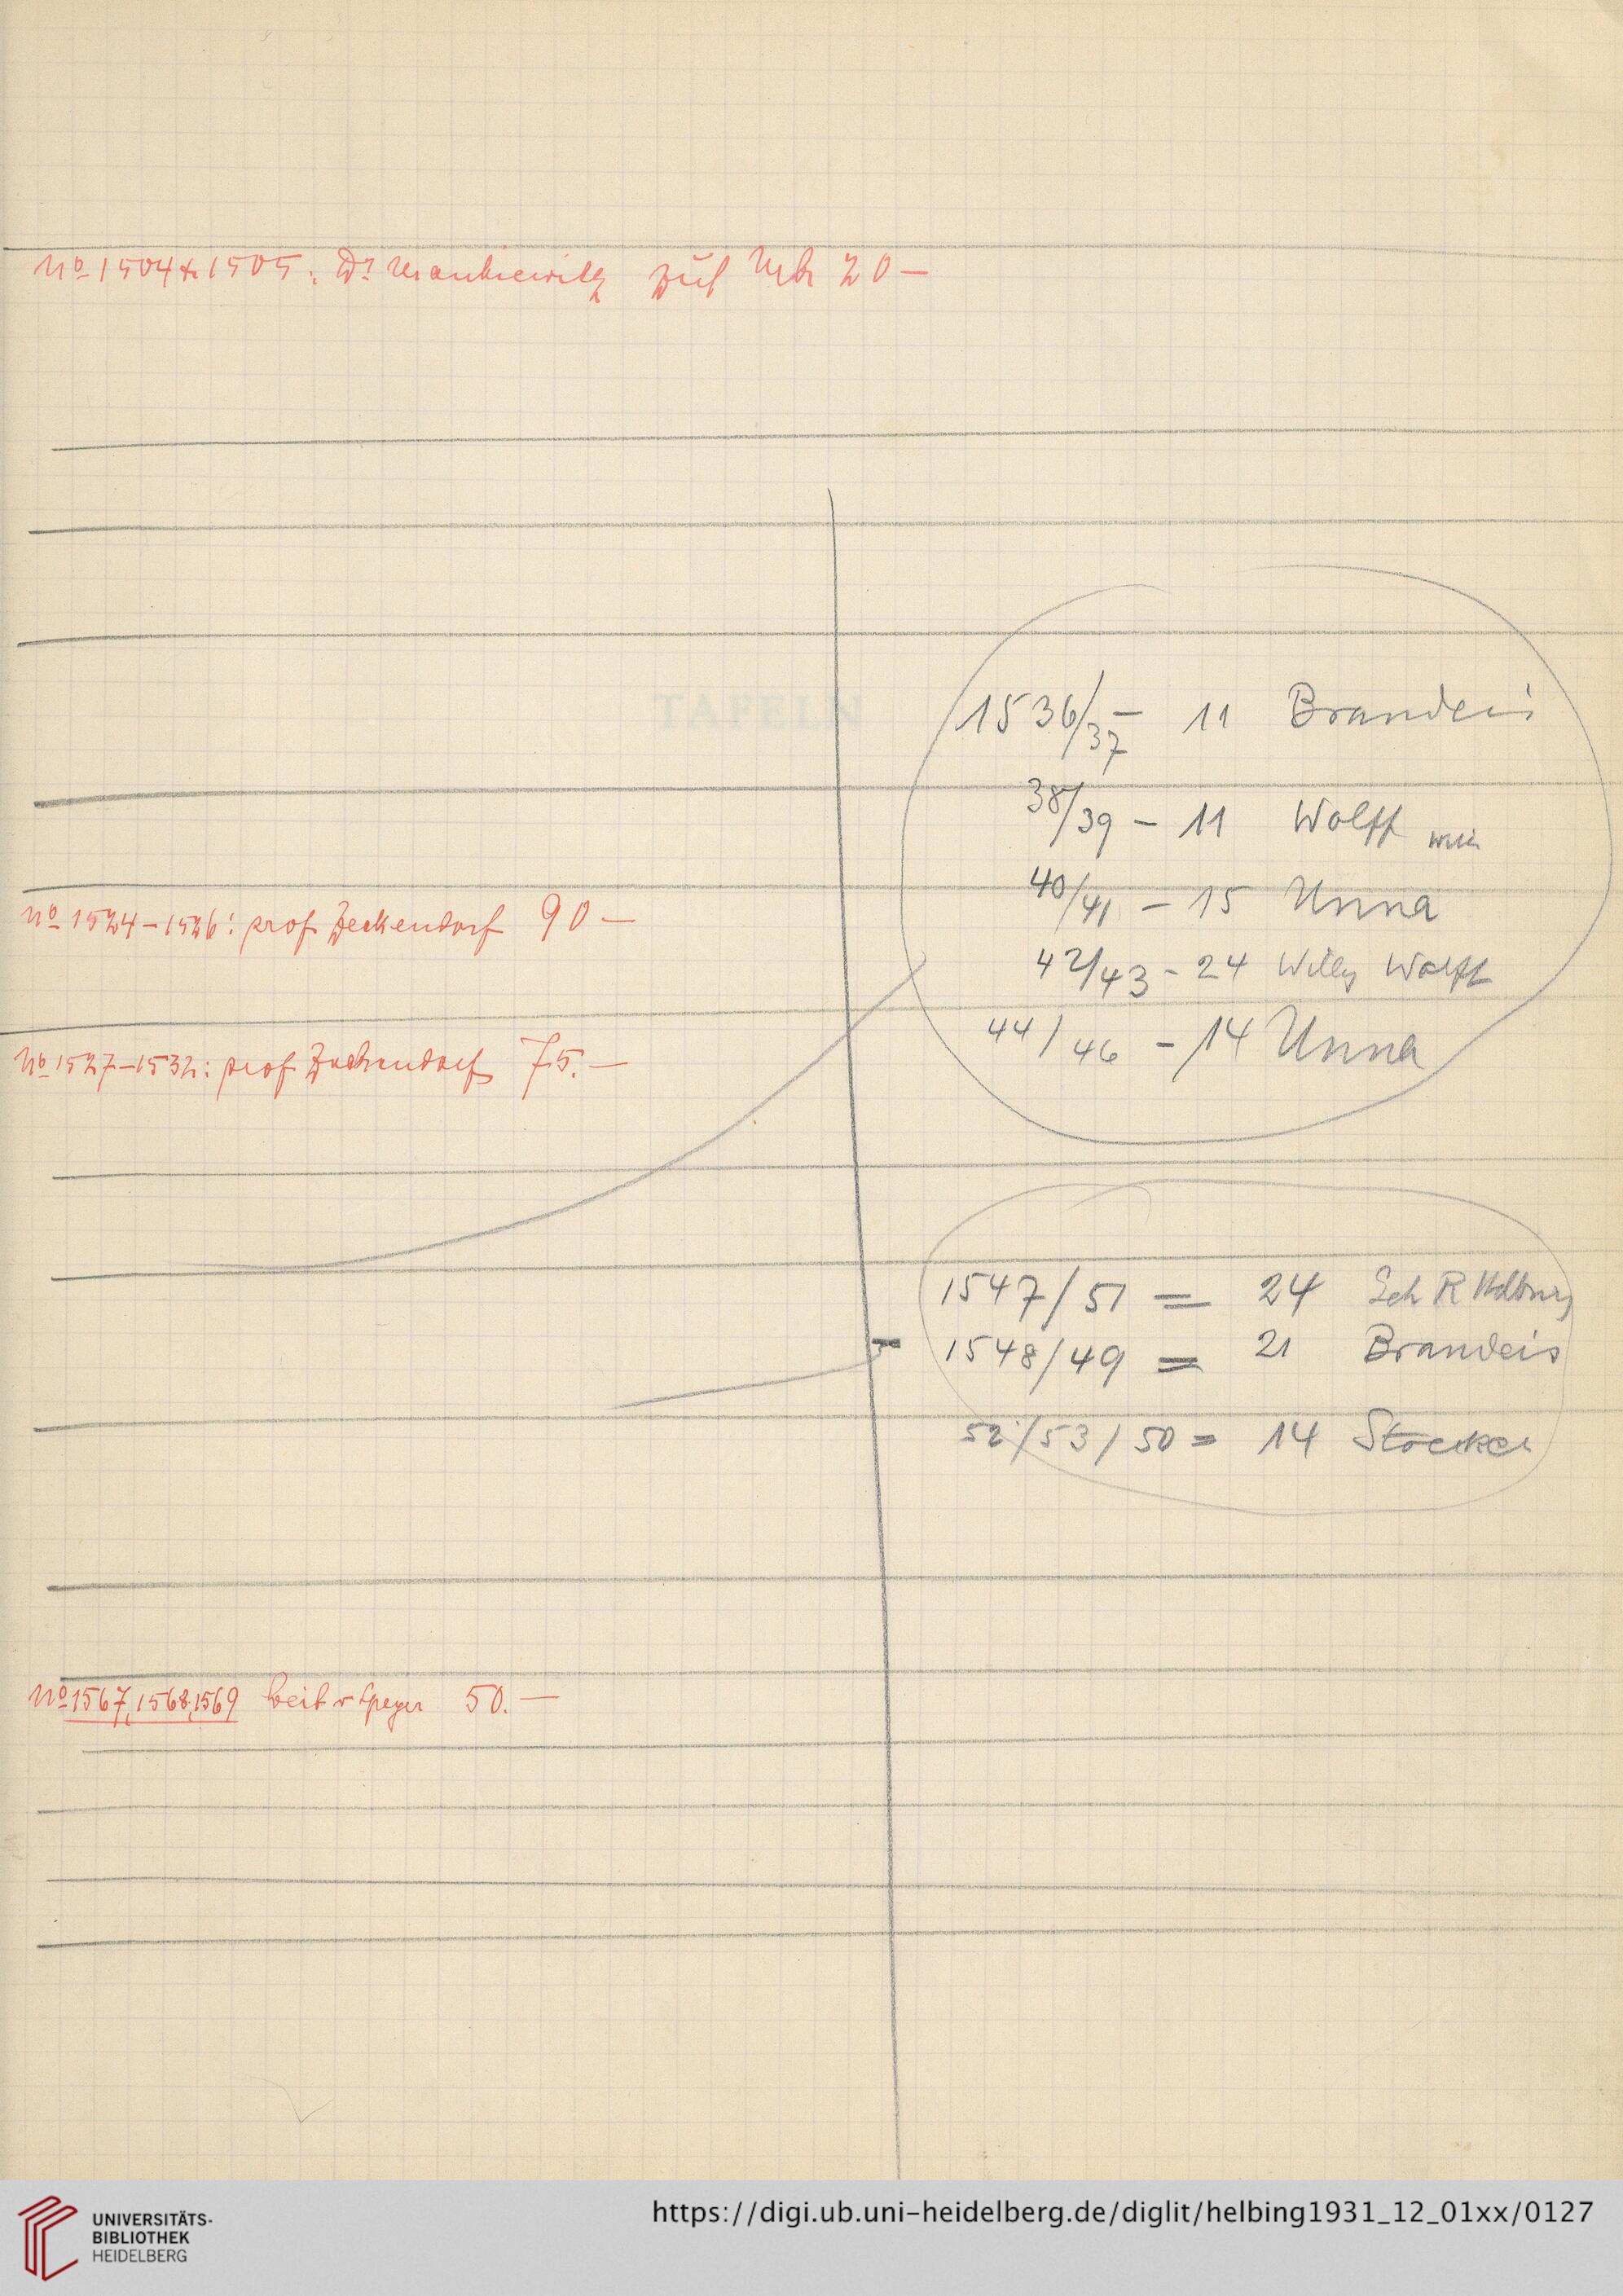 No 1504 & 1505: Dr Mankiewitz zus Mk 20 —
TAFELN
1536/37 – 11 Brandeis
38/39 – 11 Wolff
No 1524–1526: prof Zeckendorf 90 —
40/41 – 15 Unna
42/43 – 24 Willy Wolff
44/46 – 14 Unna
No 1527–1532: prof Zeckendorf 75. —
1547/51 = 24
– 1548/49 = 21 Brandeis
52/53/50 = 14 Stoecker
No 1567, 1568, 1569 50. —
UNIVERSITÄTS-
BIBLIOTHEK
HEIDELBERG
https://digi.ub.uni-heidelberg.de/diglit/helbing1931_12_01xx/0127